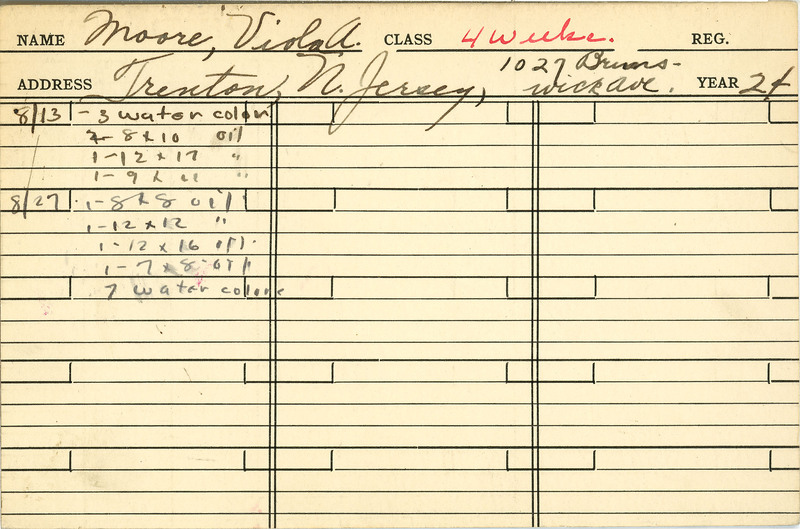 NAME Moore, Viola A. CLASS 4 Weeks. REG.
ADDRESS Trenton, N. Jersey, 1027 Bruns-
wick Ave. YEAR 24
8/13 - 3 water colors
2- 8 x 10 oil
1 - 12 x 17 "
1 - 9 x 11 "
8/27 1 - 8 x 8 oil
1 - 12 x 12 "
1 - 12 x 16 oil.
1 - 7 x 8 - oil
7 water colors